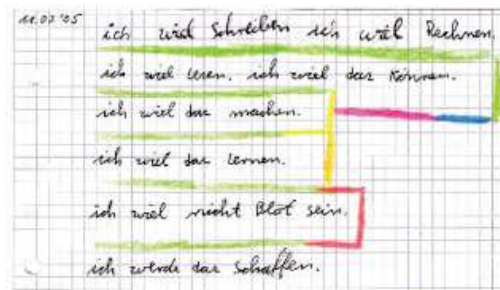 11.07'05
ich wiel schreiben ich wiel Rechnen.
ich wiel lesen. ich wiel das können.
ich wiel das machen.
ich wiel das Lernen.
ich wiel nicht Blöt sein.
ich werde das schaffen.